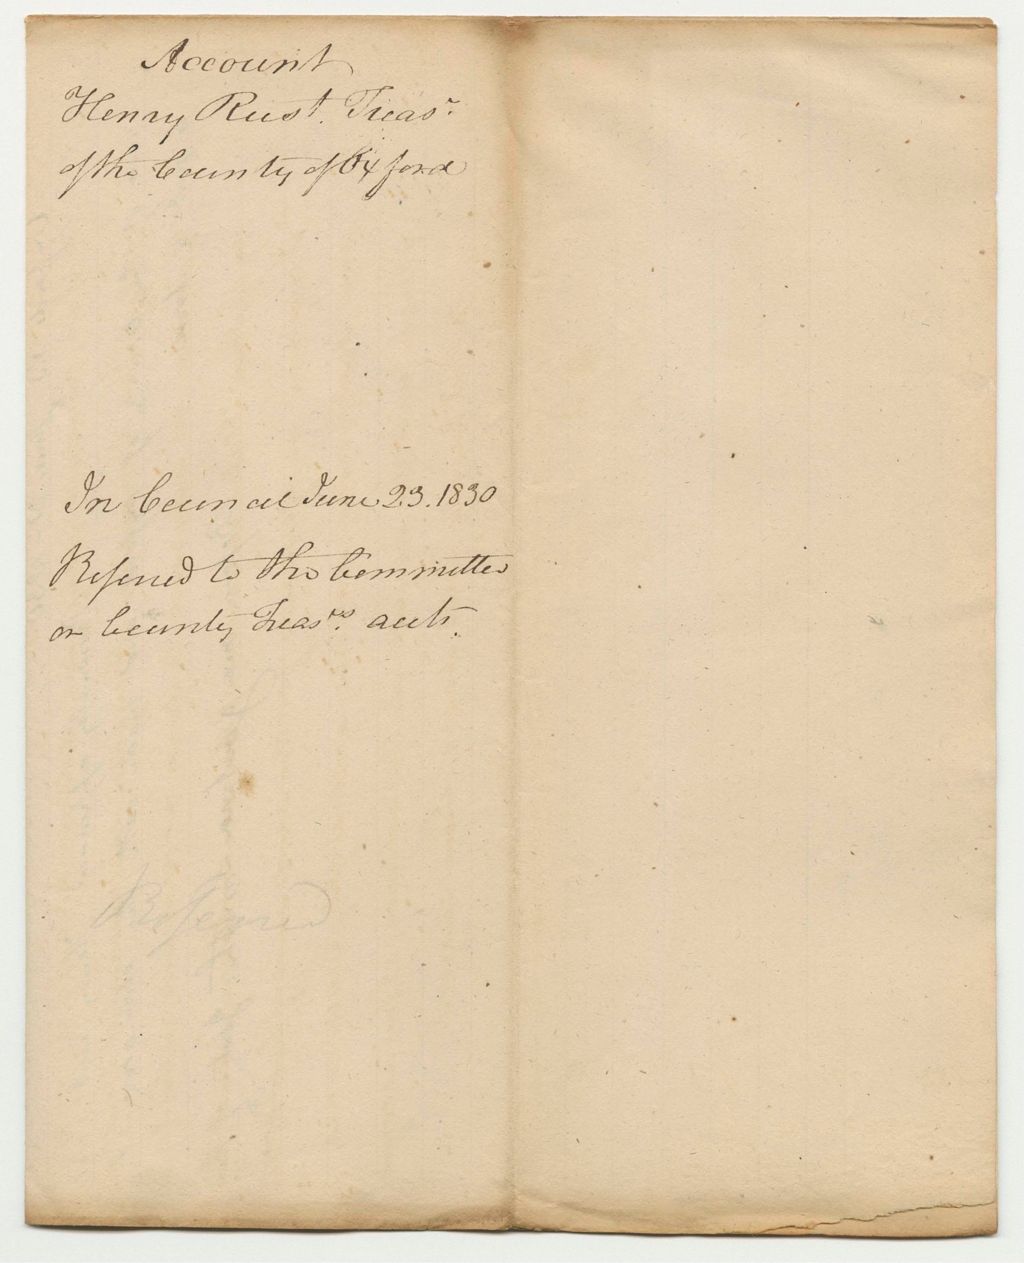 Account
Henry Rust. Treasr.
of the County of Oxford
In Council June 23. 1830
Referred to the Committee
on County Treasrs. accts.
Referred